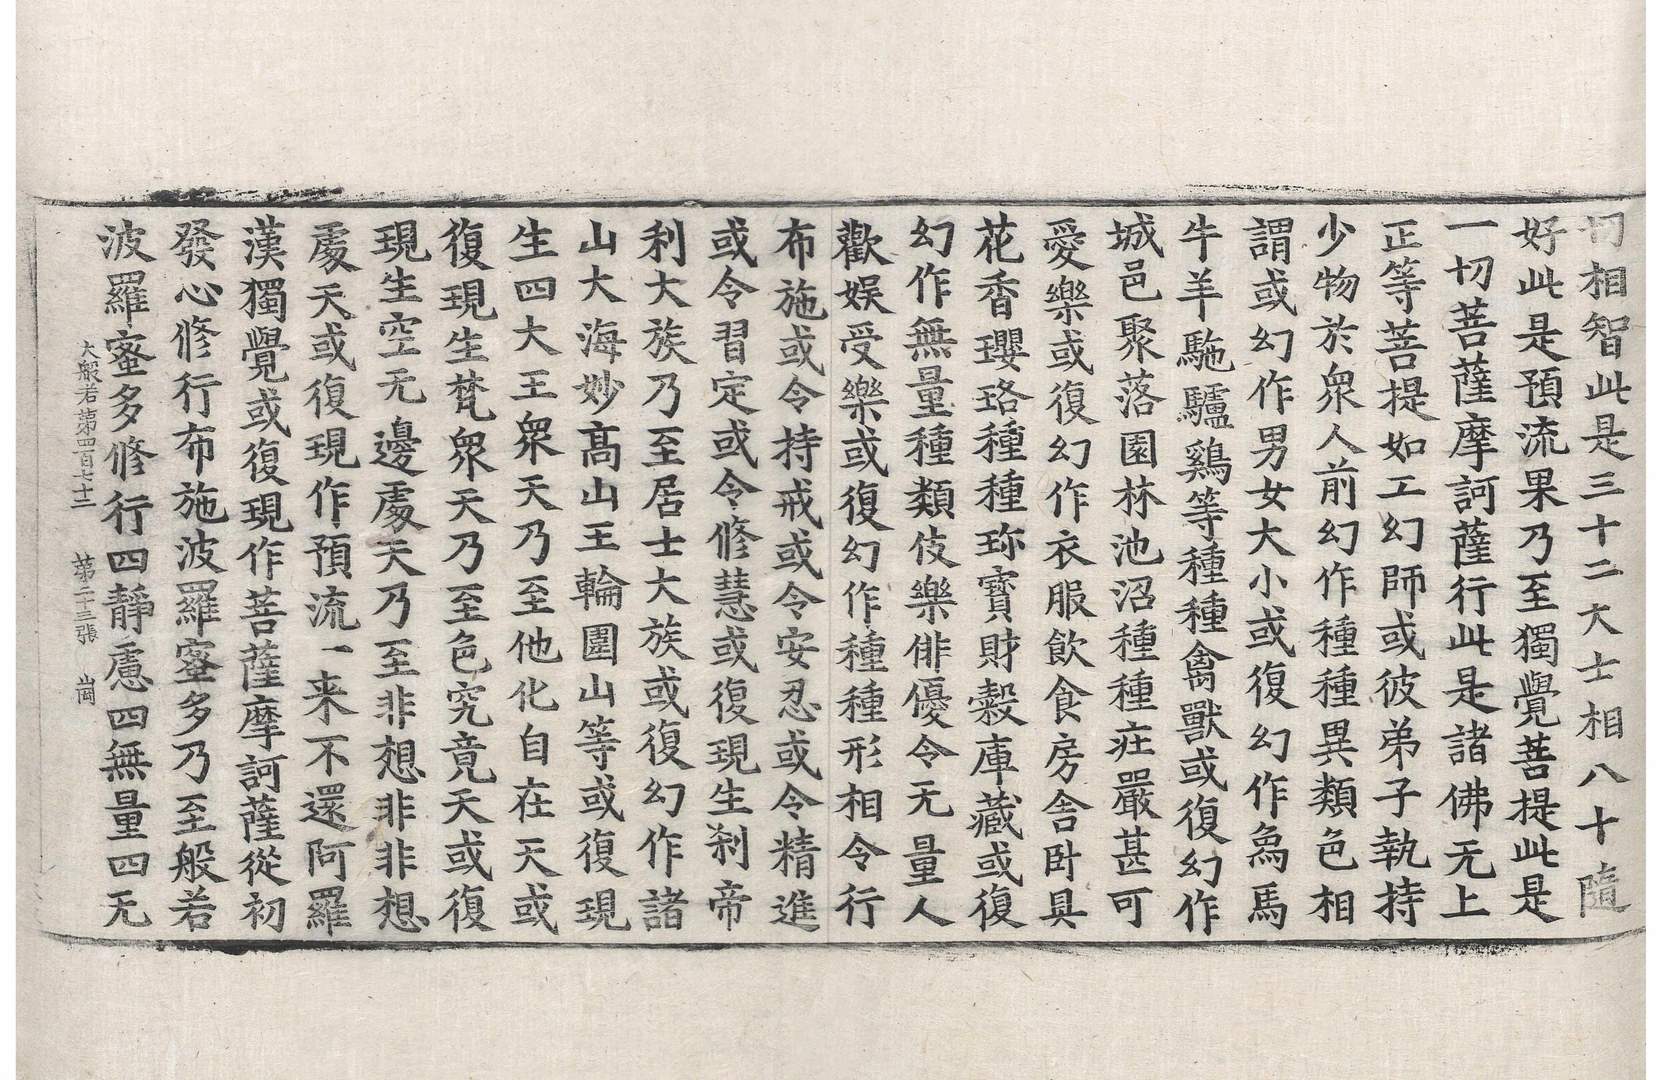 切相智此是三十二大士相八十隨
好此是預流果乃至獨覺菩提此是
一切菩薩摩訶薩行此是諸佛无上
正等菩提如工幻師或彼弟子執持
少物於衆人前幻作種種異類色相
謂或幻作男女大小或復幻作象馬
牛羊駞驢鷄等種種禽獸或復幻作
城邑聚落園林池沼種種莊嚴甚可
愛樂或復幻作衣服飲食房舍卧具
花香瓔珞種種珎寶財穀庫藏或復
幻作無量種類伎樂俳優令无量人
歡娛受樂或復幻作種種形相令行
布施或令持戒或令安忍或令精進
或令習定或令修慧或復現生刹帝
利大族乃至居士大族或復幻作諸
山大海妙高山王輪圍山等或復現
生四大王衆天乃至他化自在天或
復現生梵衆天乃至色究竟天或復
現生空无邊處天乃至非想非非想
處天或復現作預流一来不還阿羅
漢獨覺或復現作菩薩摩訶薩從初
發心修行布施波羅蜜多乃至般若
波羅蜜多修行四靜慮四無量四无
大般若第四百七十二 第二十三張 崗